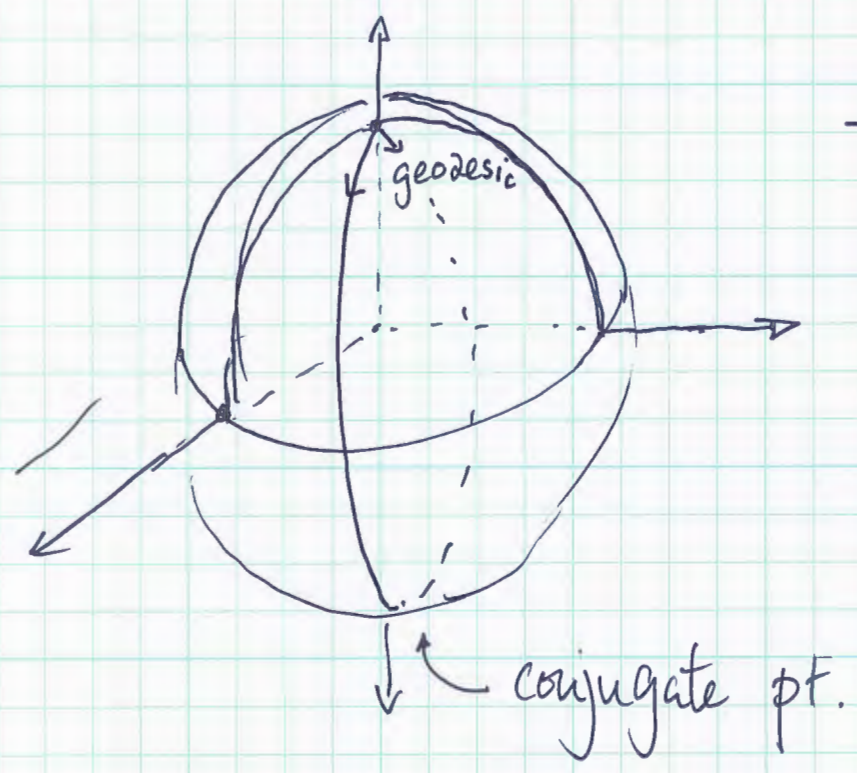 geodesic
conjugate pt.